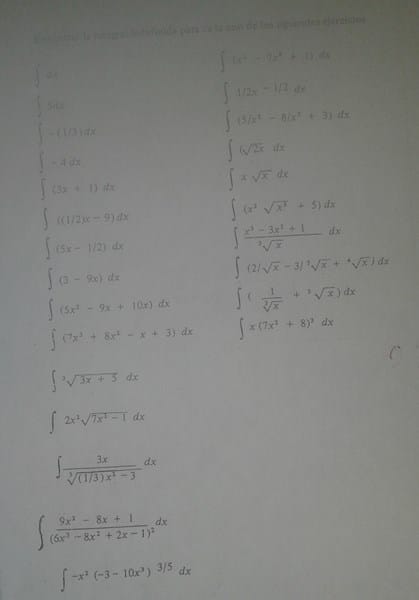 Encontrar la integral indefinida para cada uno de los siguientes ejercicios
∫ dx
∫ 5dx
∫ -(1/3)dx
∫ -4 dx
∫ (3x + 1) dx
∫ ((1/2)x - 9) dx
∫ (5x - 1/2) dx
∫ (3 - 9x) dx
∫ (5x² - 9x + 10x) dx
∫ (7x³ + 8x² - x + 3) dx
∫ ³√3x + 5 dx
∫ 2x²√7x³ - 1 dx
∫ 3x / ³√(1/3)x² - 3 dx
∫ 9x² - 8x + 1 / (6x³ - 8x² + 2x - 1)² dx
∫ -x² (-3 - 10x³) 3/5 dx
∫ 1/2x - 1/2 dx
∫ (5/x² - 8/x³ + 3) dx
∫ (√2x dx
∫ x √x dx
∫ (x² √x³ + 5) dx
∫ x³ - 3x² + 1 / ³√x dx
∫ (2/√x - 3/³√x + ⁴√x) dx
∫ ( 1 / ³√x + ³√x) dx
∫ x (7x² + 8)³ dx